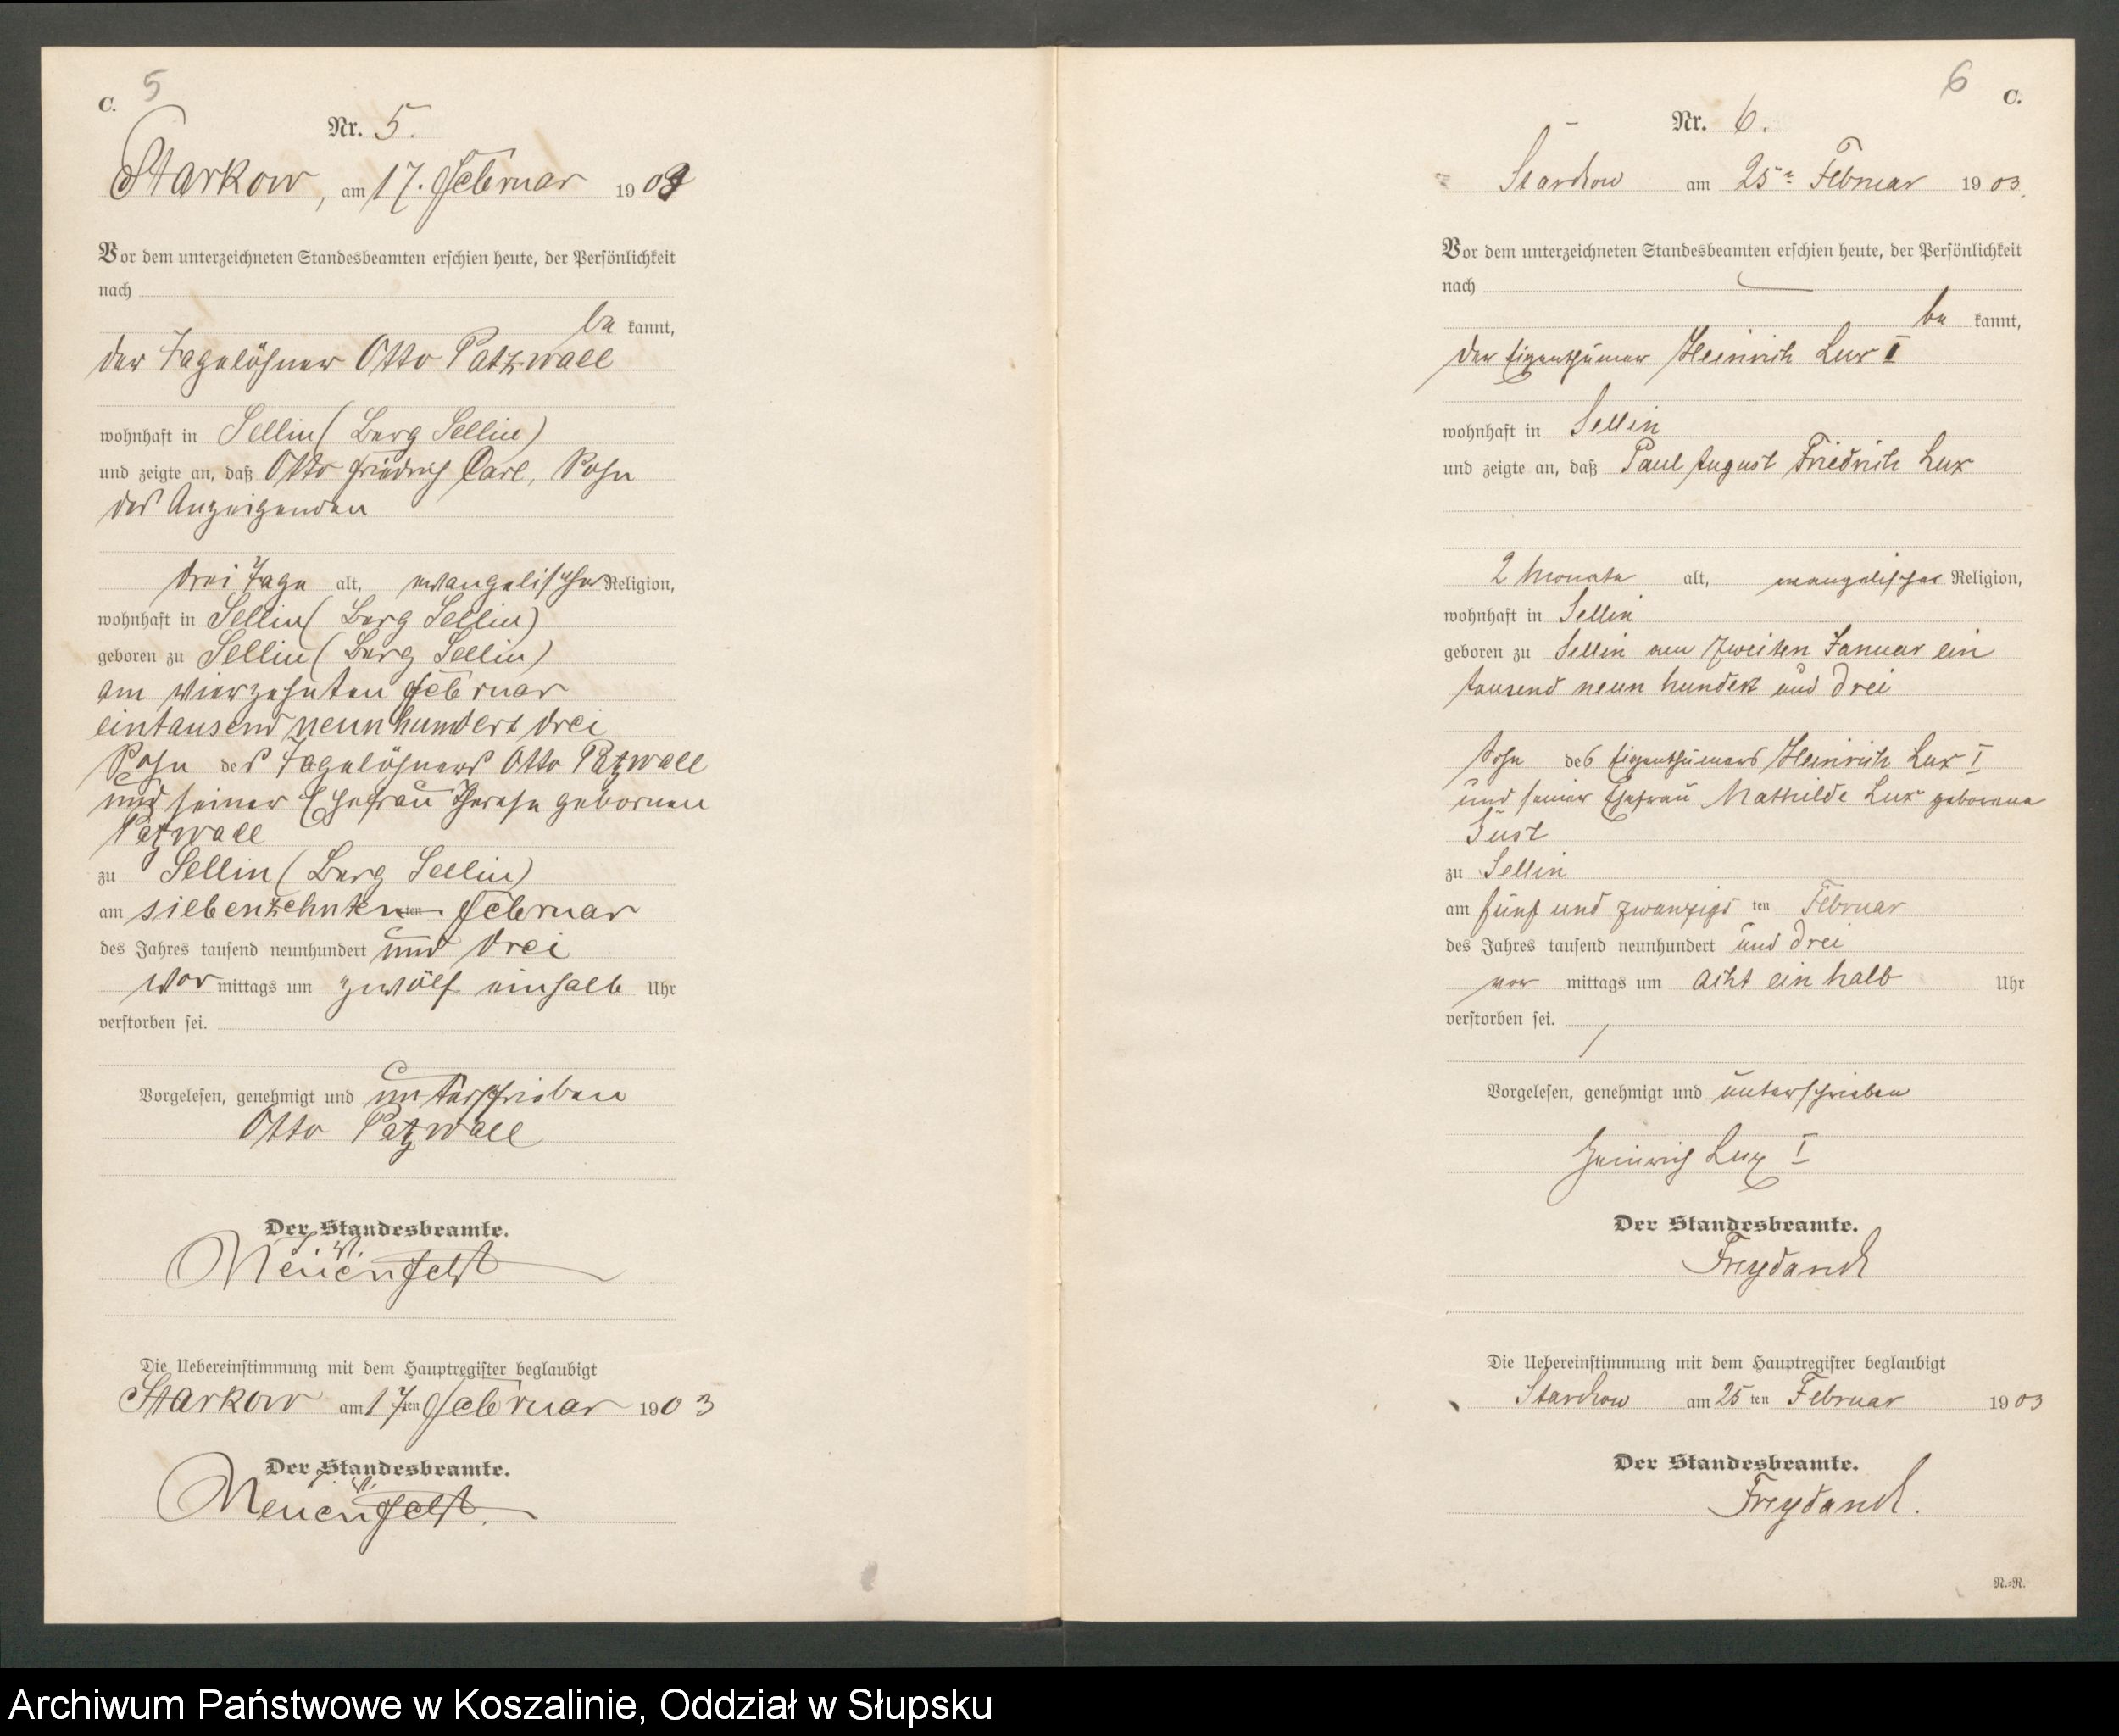 C. 5
Nr. 5.
Starkow, am 17. Februar 1903
Vor dem unterzeichneten Standesbeamten erschien heute, der Persönlichkeit
nach
be kannt,
der Tagelöhner Otto Patzwall
wohnhaft in Sellin (Berg Sellin)
und zeigte an, daß Otto Friedrich Carl, Sohn
des Anzeigenden
drei Tage alt, evangelischer Religion,
wohnhaft in Sellin (Berg Sellin)
geboren zu Sellin (Berg Sellin)
am vierzehnten Februar
eintausend neunhundert drei
Sohn des Tagelöhners Otto Patzwall
und seiner Ehefrau Therese gebornen
Patzwall
zu Sellin (Berg Sellin)
am siebenzehnten ten Februar
des Jahres tausend neunhundert und drei
Vor mittags um zwölf einhalb Uhr
verstorben sei.
Vorgelesen, genehmigt und unterschrieben
Otto Patzwall
Der Standesbeamte.
Die Uebereinstimmung mit dem Hauptregister beglaubigt
Starkow am 17ten Februar 1903
Der Standesbeamte.
6 C.
Nr. 6.
Starckow am 25 Februar 1903.
Vor dem unterzeichneten Standesbeamten erschien heute, der Persönlichkeit
nach
be kannt,
der Eigenthümer Heinrich Lux I
wohnhaft in Sellin
und zeigte an, daß Paul August Friedrich Lux
2 Monate alt, evangelischer Religion,
wohnhaft in Sellin
geboren zu Sellin am zweiten Januar ein
tausend neun hundert und drei
Sohn des Eigenthümers Heinrich Lux I
und seiner Ehefrau Mathilde Lux geborene
Just
zu Sellin
am fünf und zwanzigs ten Februar
des Jahres tausend neunhundert und drei
vor mittags um acht ein halb Uhr
verstorben sei.
Vorgelesen, genehmigt und unterschrieben
Heinrich Lux I
Der Standesbeamte.
Freydanck
Die Uebereinstimmung mit dem Hauptregister beglaubigt
Starckow am 25 ten Februar 1903
Der Standesbeamte.
Freydanck.
N.=N.
Archiwum Państwowe w Koszalinie, Oddział w Słupsku